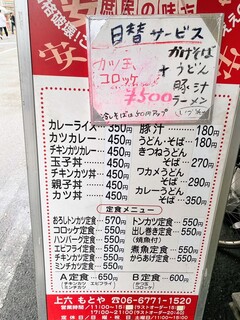 日替サービス
カツ玉、
コロッケ
¥500
+
かけそば
うどん
豚汁
ラーメン
カレーライス…350円
カツカレー…550円
チキンカツカレー…550円
玉子丼…350円
チキンカツ丼…450円
親子丼…450円
カツ丼…450円
豚汁…180円
うどん・そば…180円
きつねうどん
そば…270円
ワカメうどん
そば…290円
カレーうどん
そば…350円
定食メニュー
おろしトンカツ定食…570円
コロッケ定食…500円
ハンバーグ定食…550円
エビフライ定食…550円
チキンカツ定食…550円
ミンチカツ定食…550円
トンカツ定食…550円
出し巻き定食…550円
(焼魚付)
煮魚定食…550円
からあげ定食…550円
A定食…650円
B定食…600円
上六 もとや ☎06-6771-1520